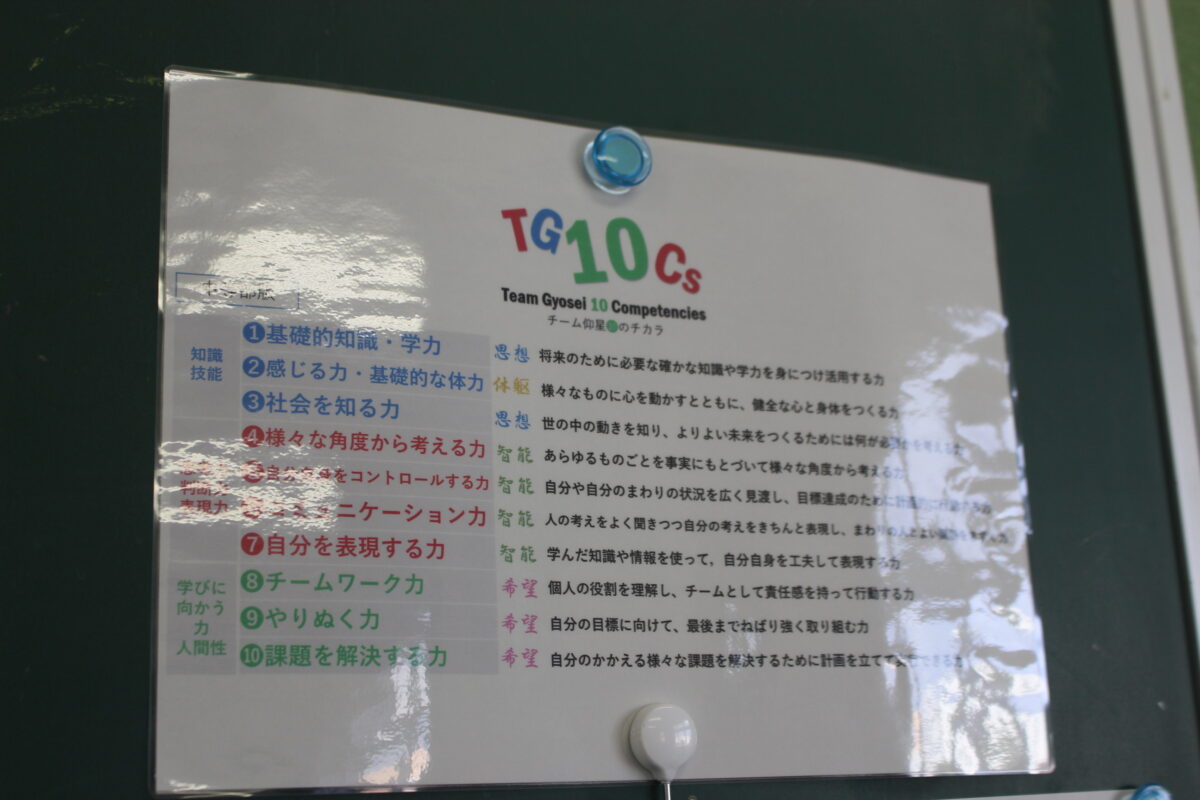 TG10Cs
Team Gyosei 10 Competencies
チーム仰星のチカラ
知識
技能
❶基礎的知識・学力 思想 将来のために必要な確かな知識や学力を身につけ活用する力
❷感じる力・基礎的な体力 体躯 様々なものに心を動かすとともに、健全な心と身体をつくる力
❸社会を知る力 思想 世の中の動きを知り、よりよい未来をつくるためには何が必要かを考える力
判断力
表現力
❹様々な角度から考える力 智能 あらゆるものごとを事実にもとづいて様々な角度から考える力
自分自身をコントロールする力 智能 自分や自分のまわりの状況を広く見渡し、目標達成のために計画的に行動する力
コミュニケーション力 智能 人の考えをよく聞きつつ自分の考えをきちんと表現し、まわりの人とよい
❼自分を表現する力 智能 学んだ知識や情報を使って、自分自身を工夫して表現する力
学びに
向かう
力
人間性
❽チームワーク力 希望 個人の役割を理解し、チームとして責任感を持って行動する力
❾やりぬく力 希望 自分の目標に向けて、最後までねばり強く取り組む力
❿課題を解決する力 希望 自分のかかえる様々な課題を解決するために計画を立てて実行できる力